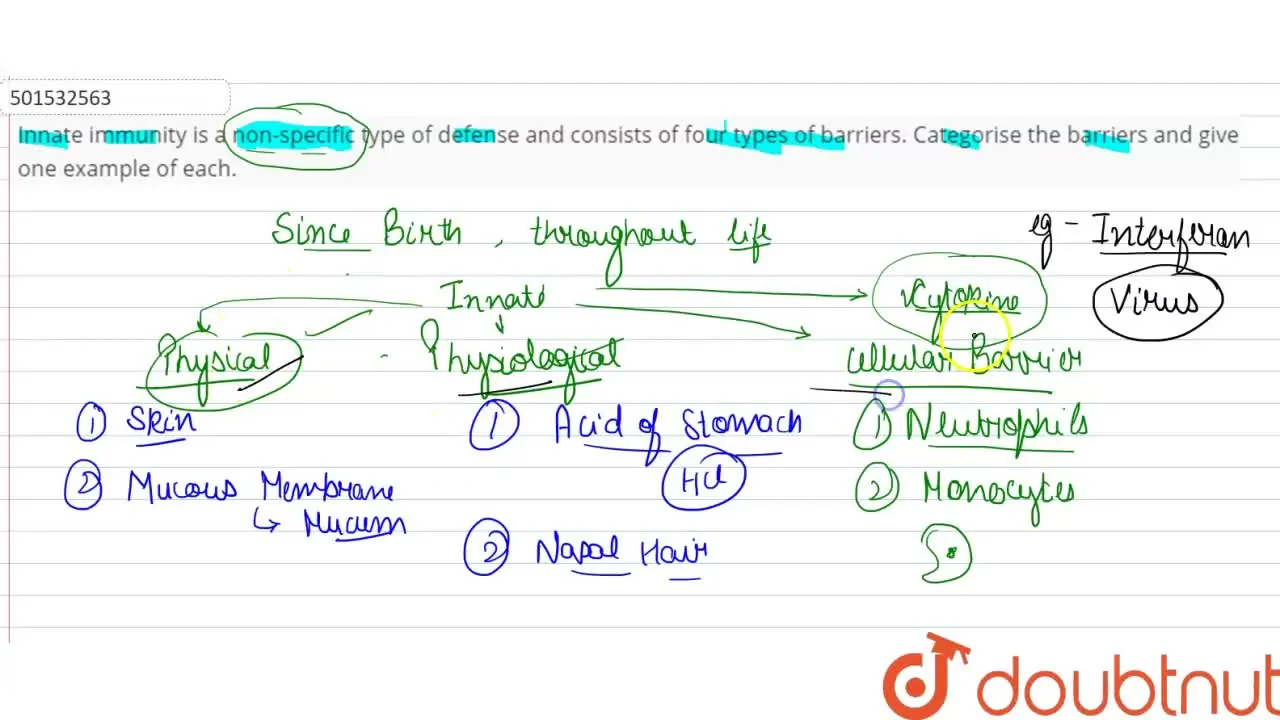 501532563
Innate immunity is a non-specific type of defense and consists of four types of barriers. Categorise the barriers and give
one example of each.
Since Birth, throughout life
eg - Interferan
Innate
Cytokine
Virus
Physical
Physiological
Cellular Barrier
① Skin
① Acid of Stomach
① Neutrophils
② Mucous Membrane
HCl
② Monocytes
↳ Mucum
② Nasal Hair
doubtnut